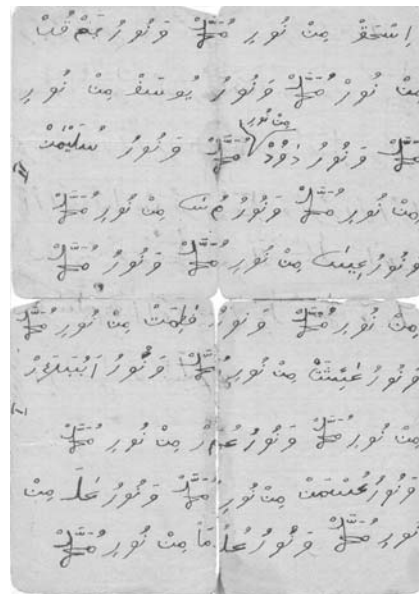 اسْحَقْ مِنْ نُورِ مُحَمَّدْ وَنُورُ يَعْقُبْ
مِنْ نُورِ مُحَمَّدْ وَنُورُ يُوسَفْ مِنْ نُورِ
مُحَمَّدْ وَنُورُ دَاوُدْ مِنْ نُورِ مُحَمَّدْ وَنُورُ سُلَيْمَنْ
مِنْ نُورِ مُحَمَّدْ وَنُورُ مُسَى مِنْ نُورِ مُحَمَّدْ
وَنُورُ عِيسَى مِنْ نُورِ مُحَمَّدْ وَنُورُ مُحَمَّدْ
مِنْ نُورِ مُحَمَّدْ وَنُورُ فَطِمَتْ مِنْ نُورِ مُحَمَّدْ
وَنُورُ عَيْشَتْ مِنْ نُورِ مُحَمَّدْ وَنُورُ ابُبَكَرْ
مِنْ نُورِ مُحَمَّدْ وَنُورُ عُمَرْ مِنْ نُورِ مُحَمَّدْ
وَنُورُ عُثْمَنْ مِنْ نُورِ مُحَمَّدْ وَنُورُ عَلِى مِنْ
نُورِ مُحَمَّدْ وَنُورُ عُلُمَاً مِنْ نُورِ مُحَمَّدْ